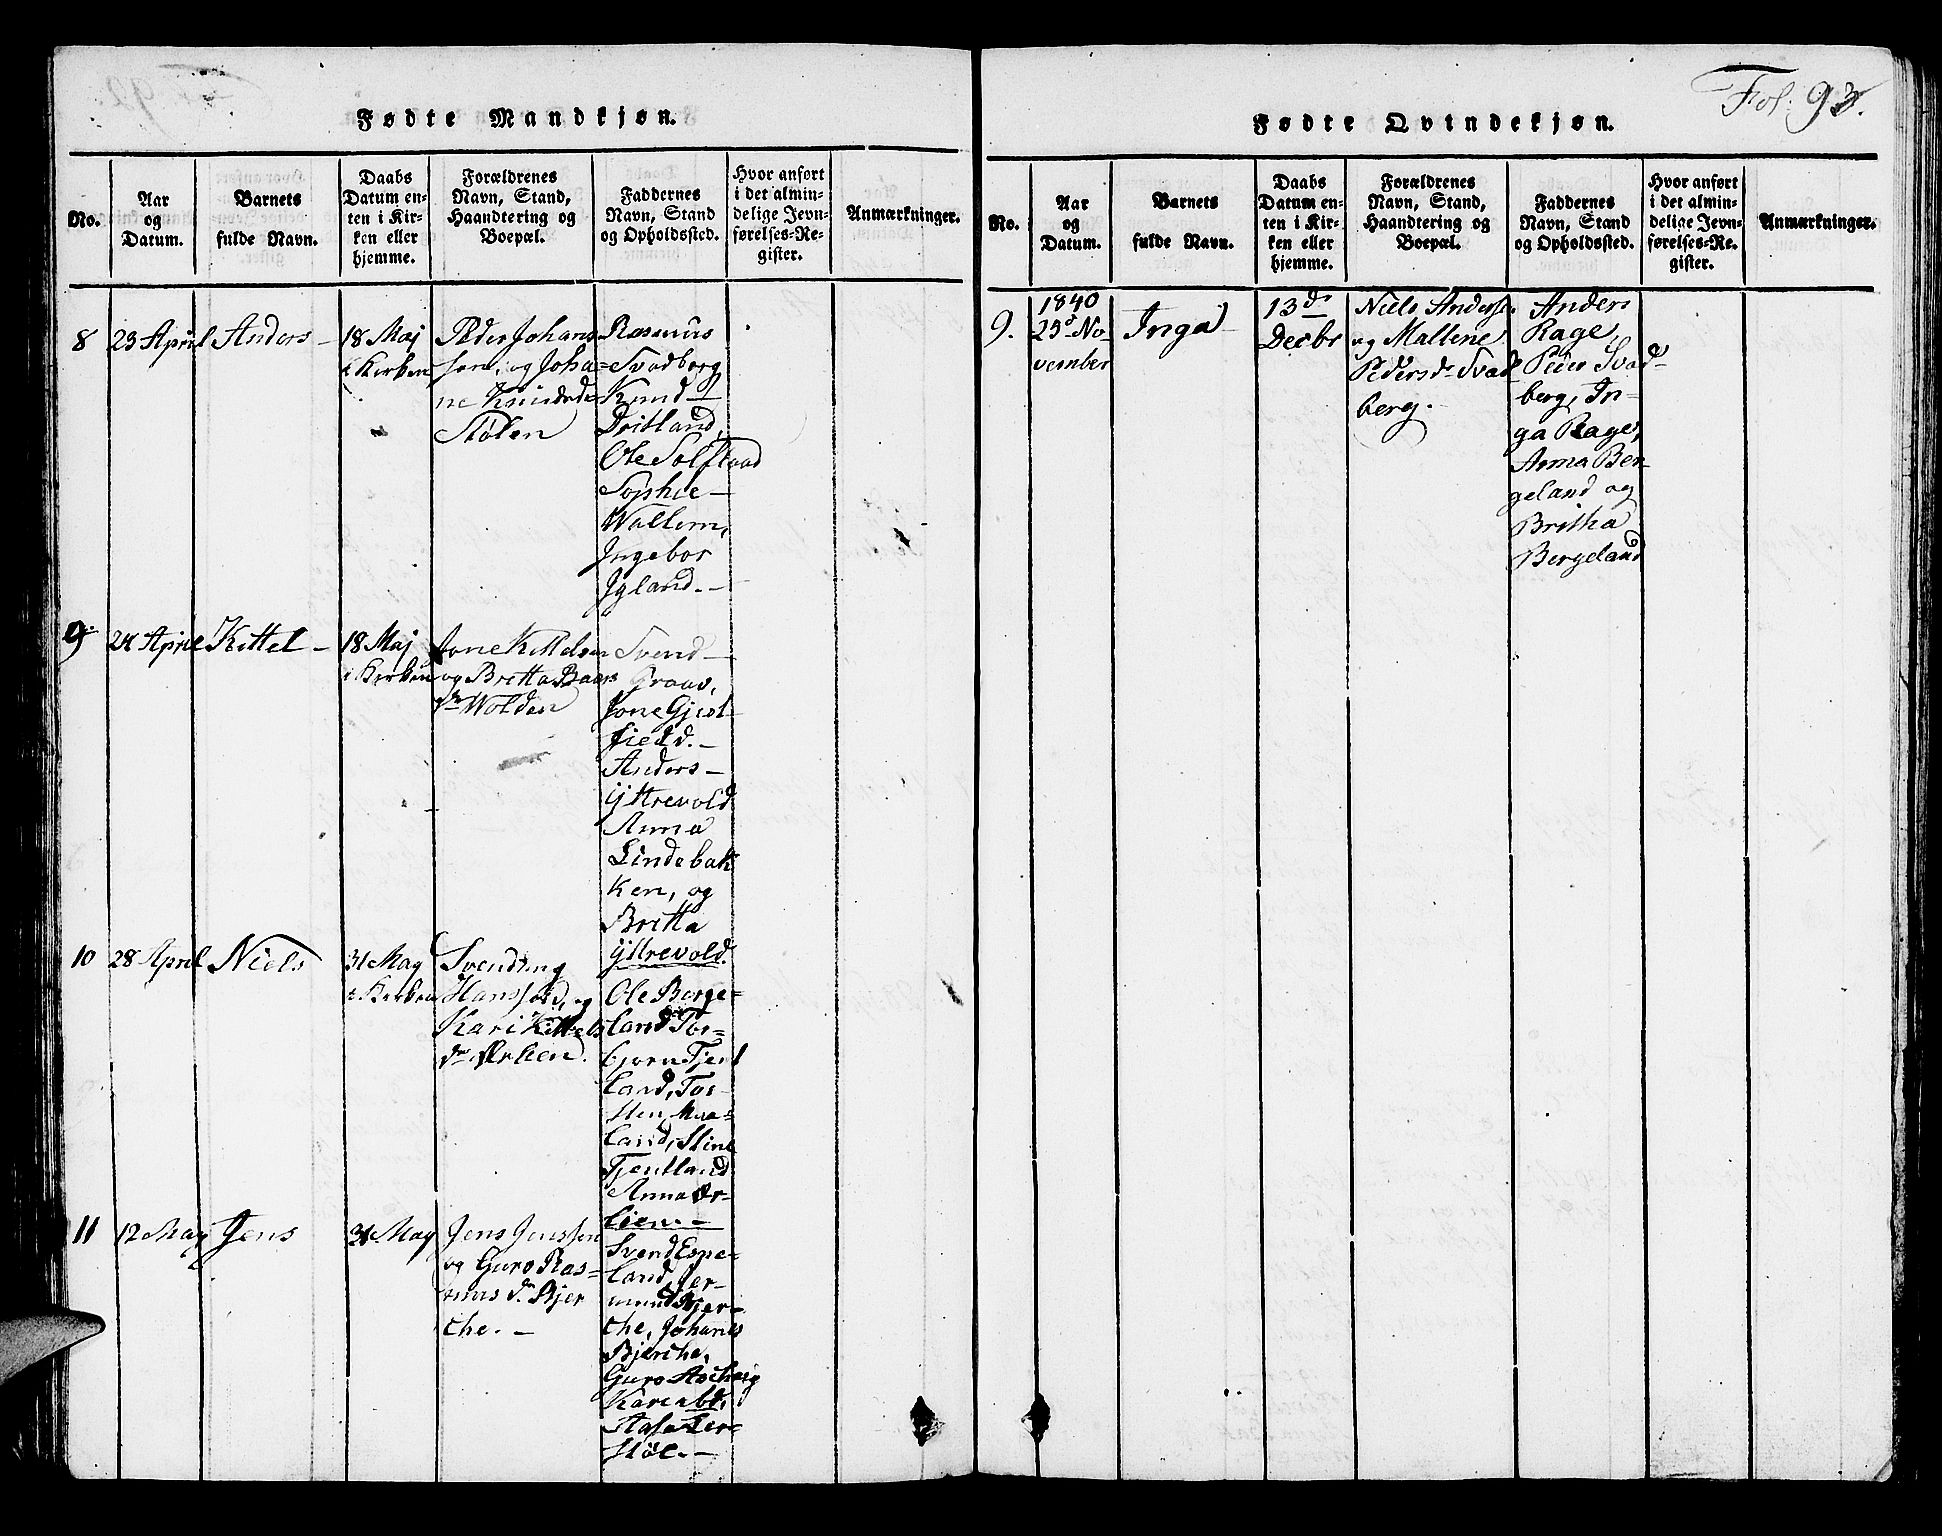 Fol: 93.
Fødte Mandkjøn.
No.
Aar
og
Datum.
Barnets
fulde Navn.
Daabs
Datum en-
ten i Kir-
ken eller
hjemme.
Forældrenes
Navn, Stand,
Haandtering og
Boepæl.
Faddernes
Navn, Stand
og Opholdssted.
Hvor anført
i det almin-
delige Jevn-
førelses-Re-
gister.
Anmærkninger.
8
23 April
Anders –
18 Maj
i Kirken
Peder Johans
sen, og Joha=
ne Knudsd=
Stølen
Rasmus
Svadberg
Knud –
Dritland,
Ole Solstaad
Sophie –
Wallem,
Ingebor
Igland. –
9.
24 April
Kittel –
18 Maj
i Kirken
Jone Kittelsen
og Britta Baars
dr Wolden
Svend –
Graav,
Jone Gjest
field. –
Anders –
Yttrevold
Anna
Lindebak
ken, og
Britta
Yttrevold.
10
28 April
Niels
31 May
i Kirken
Svendung
Hanssøn, og
Kari Kittels
dr Ørlien.
Ole Berge=
land Tor=
bjørn Tjent
land, Tor-
sten Maa=
land, Stine
Tjentland
Anna Ør-
lien. –
11
12 May
Jens
31 May
Jens Jenssen
og Guro Ras=
mus dr. Bjer
che. –
Svend Espe=
land, Jer-
mund Bjer-
che, Johanes
Bjerche,
Guro
Karen ibd,
Aasa
støl. –
Fødte Qvindekjøn.
No.
Aar
og
Datum.
Barnets
fulde Navn.
Daabs
Datum en-
ten i Kir-
ken eller
hjemme.
Forældrenes
Navn, Stand,
Haandtering og
Boepæl.
Faddernes
Navn, Stand
og Opholdssted.
Hvor anført
i det almin-
delige Jevn-
førelses-Re-
gister.
Anmærkninger.
9.
1840
23d No-
vember
Inga
13de
Decbr
Niels Anders.
og Mallene
Pedersdr Svad
berg.
Anders
Rage,
Peder Svad-
berg, In-
ga Rage,
Anna Ber-
geland og
Britha
Bergeland